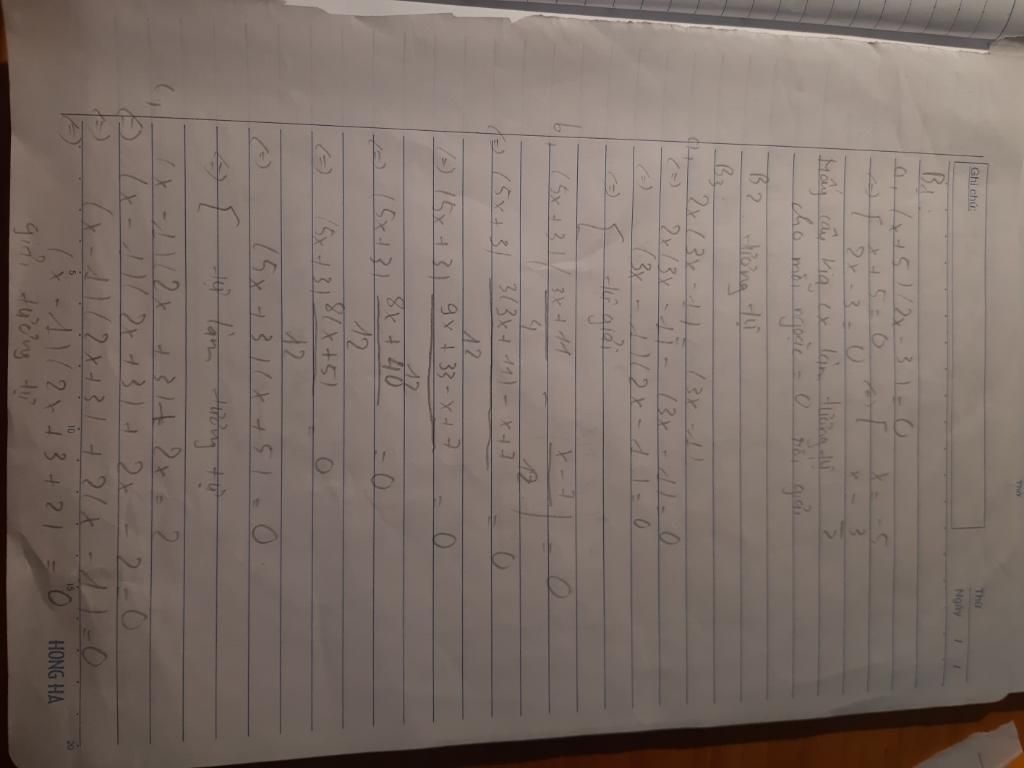 Ghi chú:
Thứ
Ngày / /
B1
a, (x+5)(2x-3)=0
(=) [ x+5=0 (=) [ x=-5
2x-3=0 x=3/2
Mấy câu kia cx làm tương tự
cho mỗi ngoặc = 0 rồi giải
B2 tương tự
B3
a, 2x(3x-1) = (3x-1)
(=) 2x(3x-1) - (3x-1) = 0
(=) (3x-1)(2x-1) = 0
(=) [ tự giải
b, (5x+3)(3x+11/4 - x-7/12) = 0
(=) (5x+3) 3(3x+11)-x+7/12 = 0
(=) (5x+3) 9x+33-x+7/12 = 0
(=) (5x+3) 8x+40/12 = 0
(=) (5x+3) 8(x+5)/12 = 0
(=) (5x+3)(x+5) = 0
(=) [ tự làm tương tự
c, (x-1)(2x+3)+2x=2
(=) (x-1)(2x+3)+2x-2=0
(=) (x-1)(2x+3)+2(x-1)=0
(=) (x-1)(2x+3+2)=0
giải tương tự
5 10 15 20
HONG HA